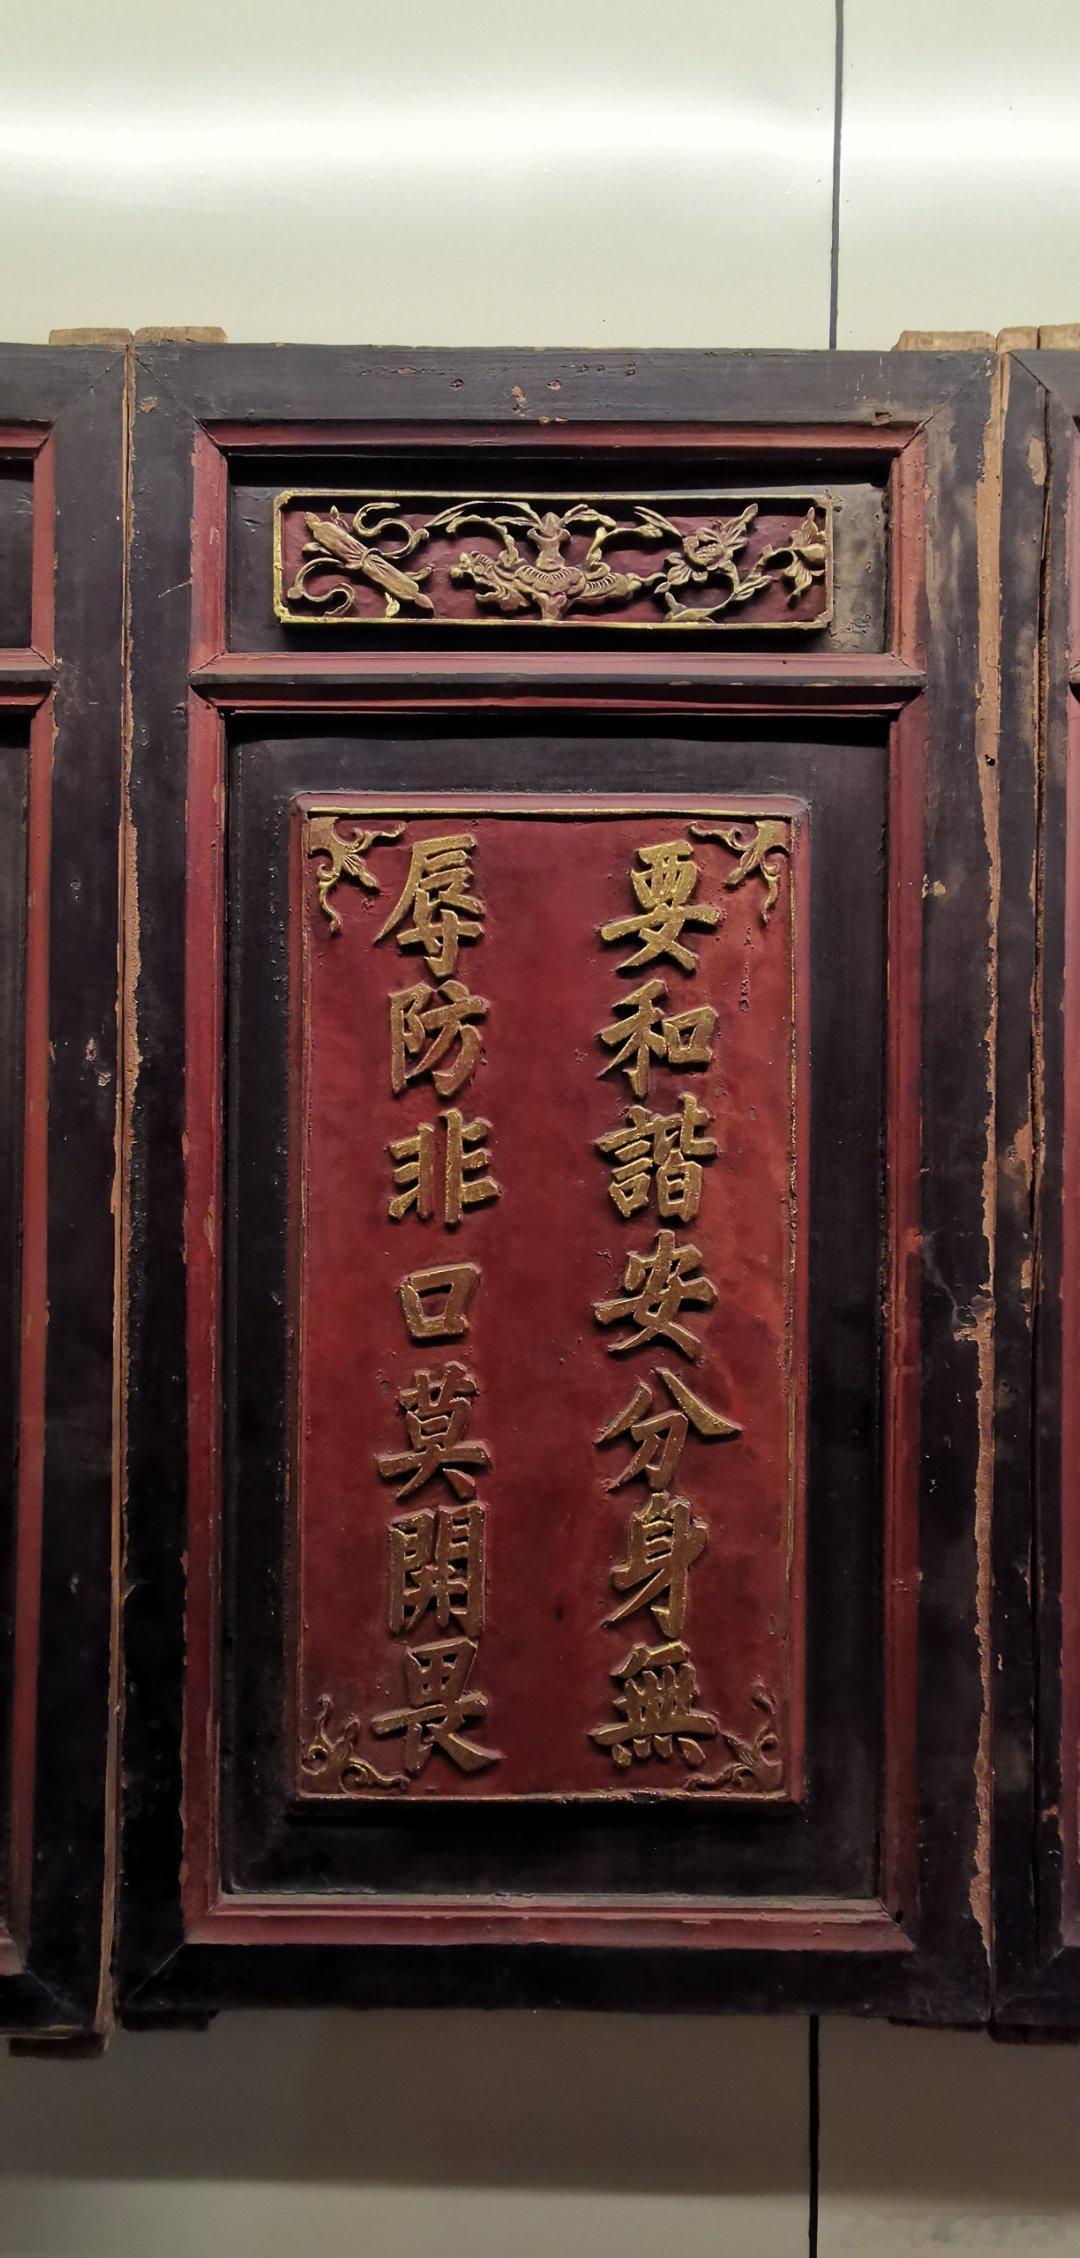 要和諧安分身無
辱防非口莫開畏